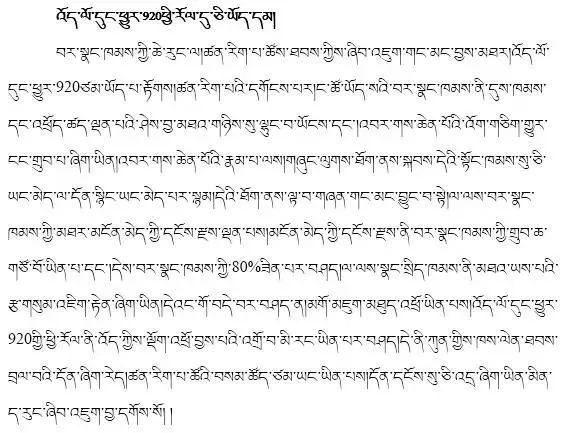 འོད་ལོ་དུང་ཕྱུར་920ཕྱི་རོལ་དུ་ཅི་ཡོད་དམ།
བར་སྣང་ཁམས་ཀྱི་ཆེ་རུང་ལ།ཚན་རིག་པ་ཚོས་ཐབས་ཀྱིས་ཞིབ་འཇུག་གང་མང་བྱས་མཐར།འོད་ལོ་
དུང་ཕྱུར་920ཙམ་ཡོད་པ་རྟོགས།ཚན་རིག་པའི་དགོངས་པར།ང་ཚོ་ཡོད་སའི་བར་སྣང་ཁམས་ནི་དུས་ཁམས་
དང་འཕྲོད་ཚད་ལྡན་པའི་ཤེས་བྱ་མཐའ་གཉིས་སུ་ལྷུང་བ་ཡོངས་དང་།འབར་གས་ཆེན་པོའི་འོག་གཅིག་གྱུར་
ངང་གྲུབ་པ་ཞིག་ཡིན།འབར་གས་ཆེན་པོའི་རྣམ་པ་ལས།གཞུང་ལུགས་ཐོག་ནས་སྐབས་དེའི་སྟོང་ཁམས་སུ་ཅི་
ཡང་མེད་ལ་དོན་སྙིང་ཡང་མེད་པར་སྙམ།དེའི་ཐོག་ནས་ལྟ་བ་གཞན་གང་མང་བྱུང་བ་སྟེ།ལ་ལས་བར་སྣང་
ཁམས་ཀྱི་མཐར་མངོན་མེད་ཀྱི་དངོས་རྫས་ལྡན་པས།མངོན་མེད་ཀྱི་དངོས་རྫས་ནི་བར་སྣང་ཁམས་ཀྱི་གྲུབ་ཆ་
གཙོ་བོ་ཡིན་པ་དང་།དེས་བར་སྣང་ཁམས་ཀྱི་80%ཟིན་པར་བཤད།ལ་ལས་སྣང་སྲིད་ཁམས་ནི་མཐའ་ཡས་པའི་
རྩ་གསུམ་འཇིག་རྟེན་ཞིག་ཡིན།དེའང་གོ་བདེ་བར་བཤད་ན།མགོ་མཇུག་མཐུད་འཕྲོ་ཡིན་པས།འོད་ལོ་དུང་ཕྱུར་
920གྱི་ཕྱི་རོལ་ནི་འོད་ཀྱིས་ལྡོག་འཕྲོ་བྱས་པའི་འགྲོ་བ་མི་རང་ཡིན་པར་བཤད།དེ་ནི་ཀུན་གྱིས་ཁས་ལེན་ཐབས་
བྲལ་བའི་དོན་ཞིག་རེད།ཚན་རིག་པ་ཚོའི་བསམ་ཚོད་ཙམ་ཡང་ཡིན་པས།དོན་དངོས་སུ་ཅི་འདྲ་ཞིག་ཡིན་མིན་
ད་རུང་ཞིབ་འཇུག་བྱ་དགོས་སོ། །